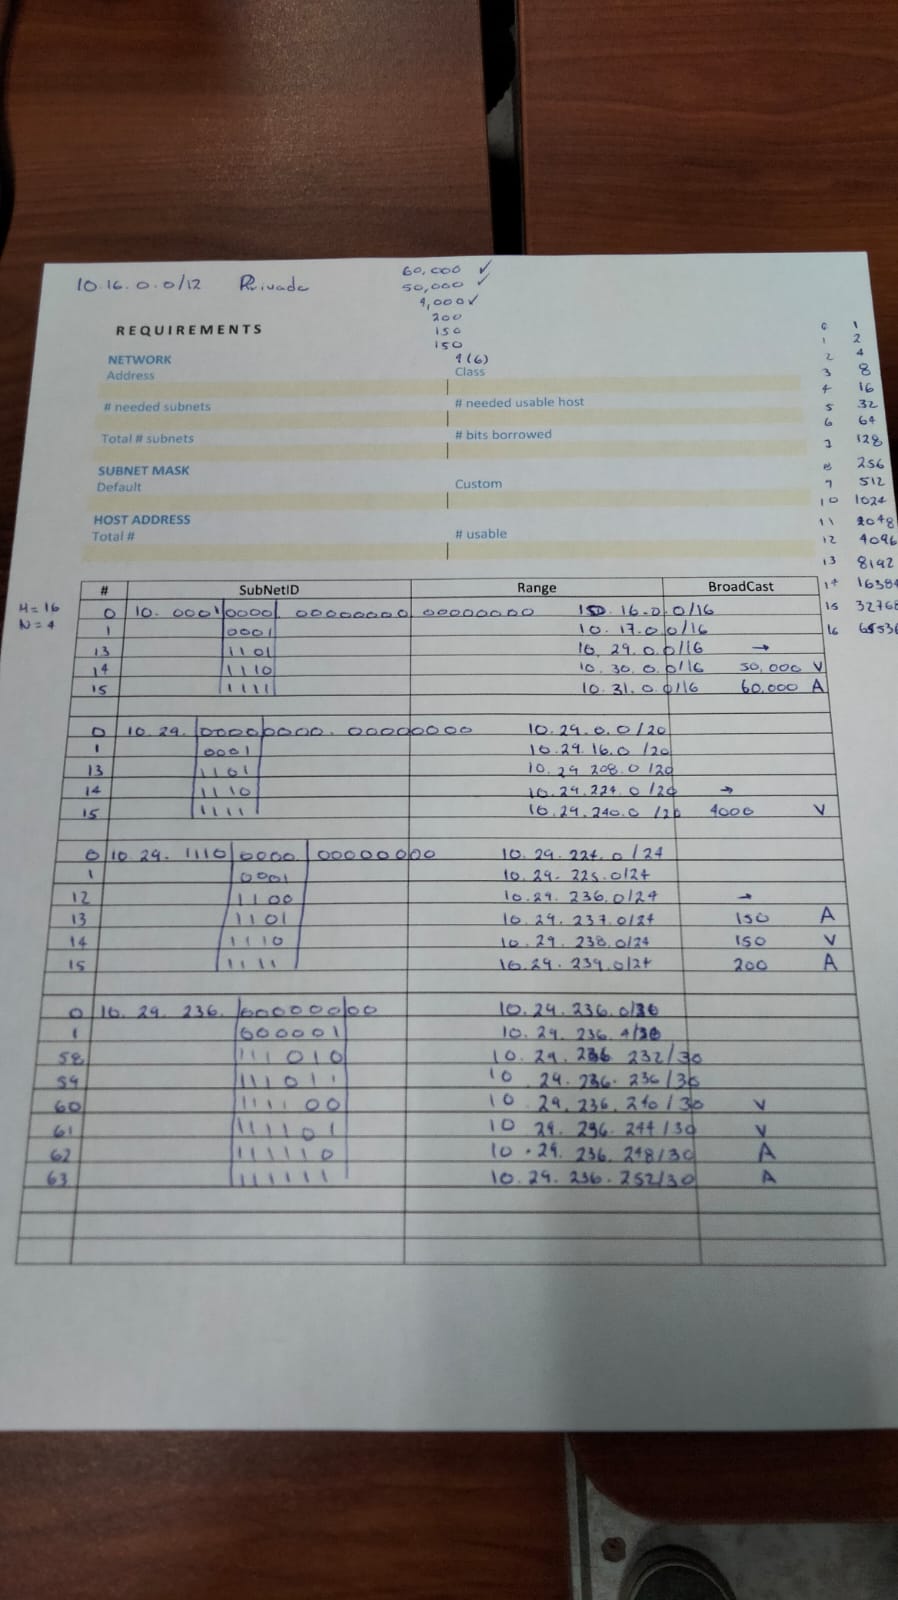 10.16.0.0/12 Privada
60,000 ✓
50,000 ✓
4,000 ✓
200
150
150
4(6)
REQUIREMENTS
NETWORK
Address Class
# needed subnets # needed usable host
Total # subnets # bits borrowed
SUBNET MASK
Default Custom
HOST ADDRESS
Total # # usable
0 1
1 2
2 4
3 8
4 16
5 32
6 64
7 128
8 256
9 512
10 1024
11 2048
12 4096
13 8192
14 16384
15 32768
16 65536
H=16
N=4
# SubNetID Range BroadCast
0 10. 0001|0000| 00000000 00000000 10.16.0.0/16
1 0001 10.17.0.0/16
13 1101 10.29.0.0/16 →
14 1110 10.30.0.0/16 50,000 V
15 1111 10.31.0.0/16 60.000 A
0 10.29.|0000|0000.00000000 10.29.0.0/20
1 0001 10.29.16.0/20
13 1101 10.29 208.0/20
14 1110 10.29.224.0/20 →
15 1111 10.29.240.0/20 4000 V
0 10.29. 1110|0000|00000000 10.29.224.0/24
1 0001 10.29.225.0/24
12 1100 10.29.236.0/24 →
13 1101 10.29.237.0/24 150 A
14 1110 10.29.238.0/24 150 V
15 1111 10.29.239.0/24 200 A
0 10.29.236.|000000|00 10.29.236.0/30
1 000001 10.29.236.4/30
58 111010 10.29.236 232/30
59 111011 10.29.236.236/30
60 111100 10.29.236.240/30 V
61 111101 10.29.236.244/30 V
62 111110 10.29.236.248/30 A
63 111111 10.29.236.252/30 A